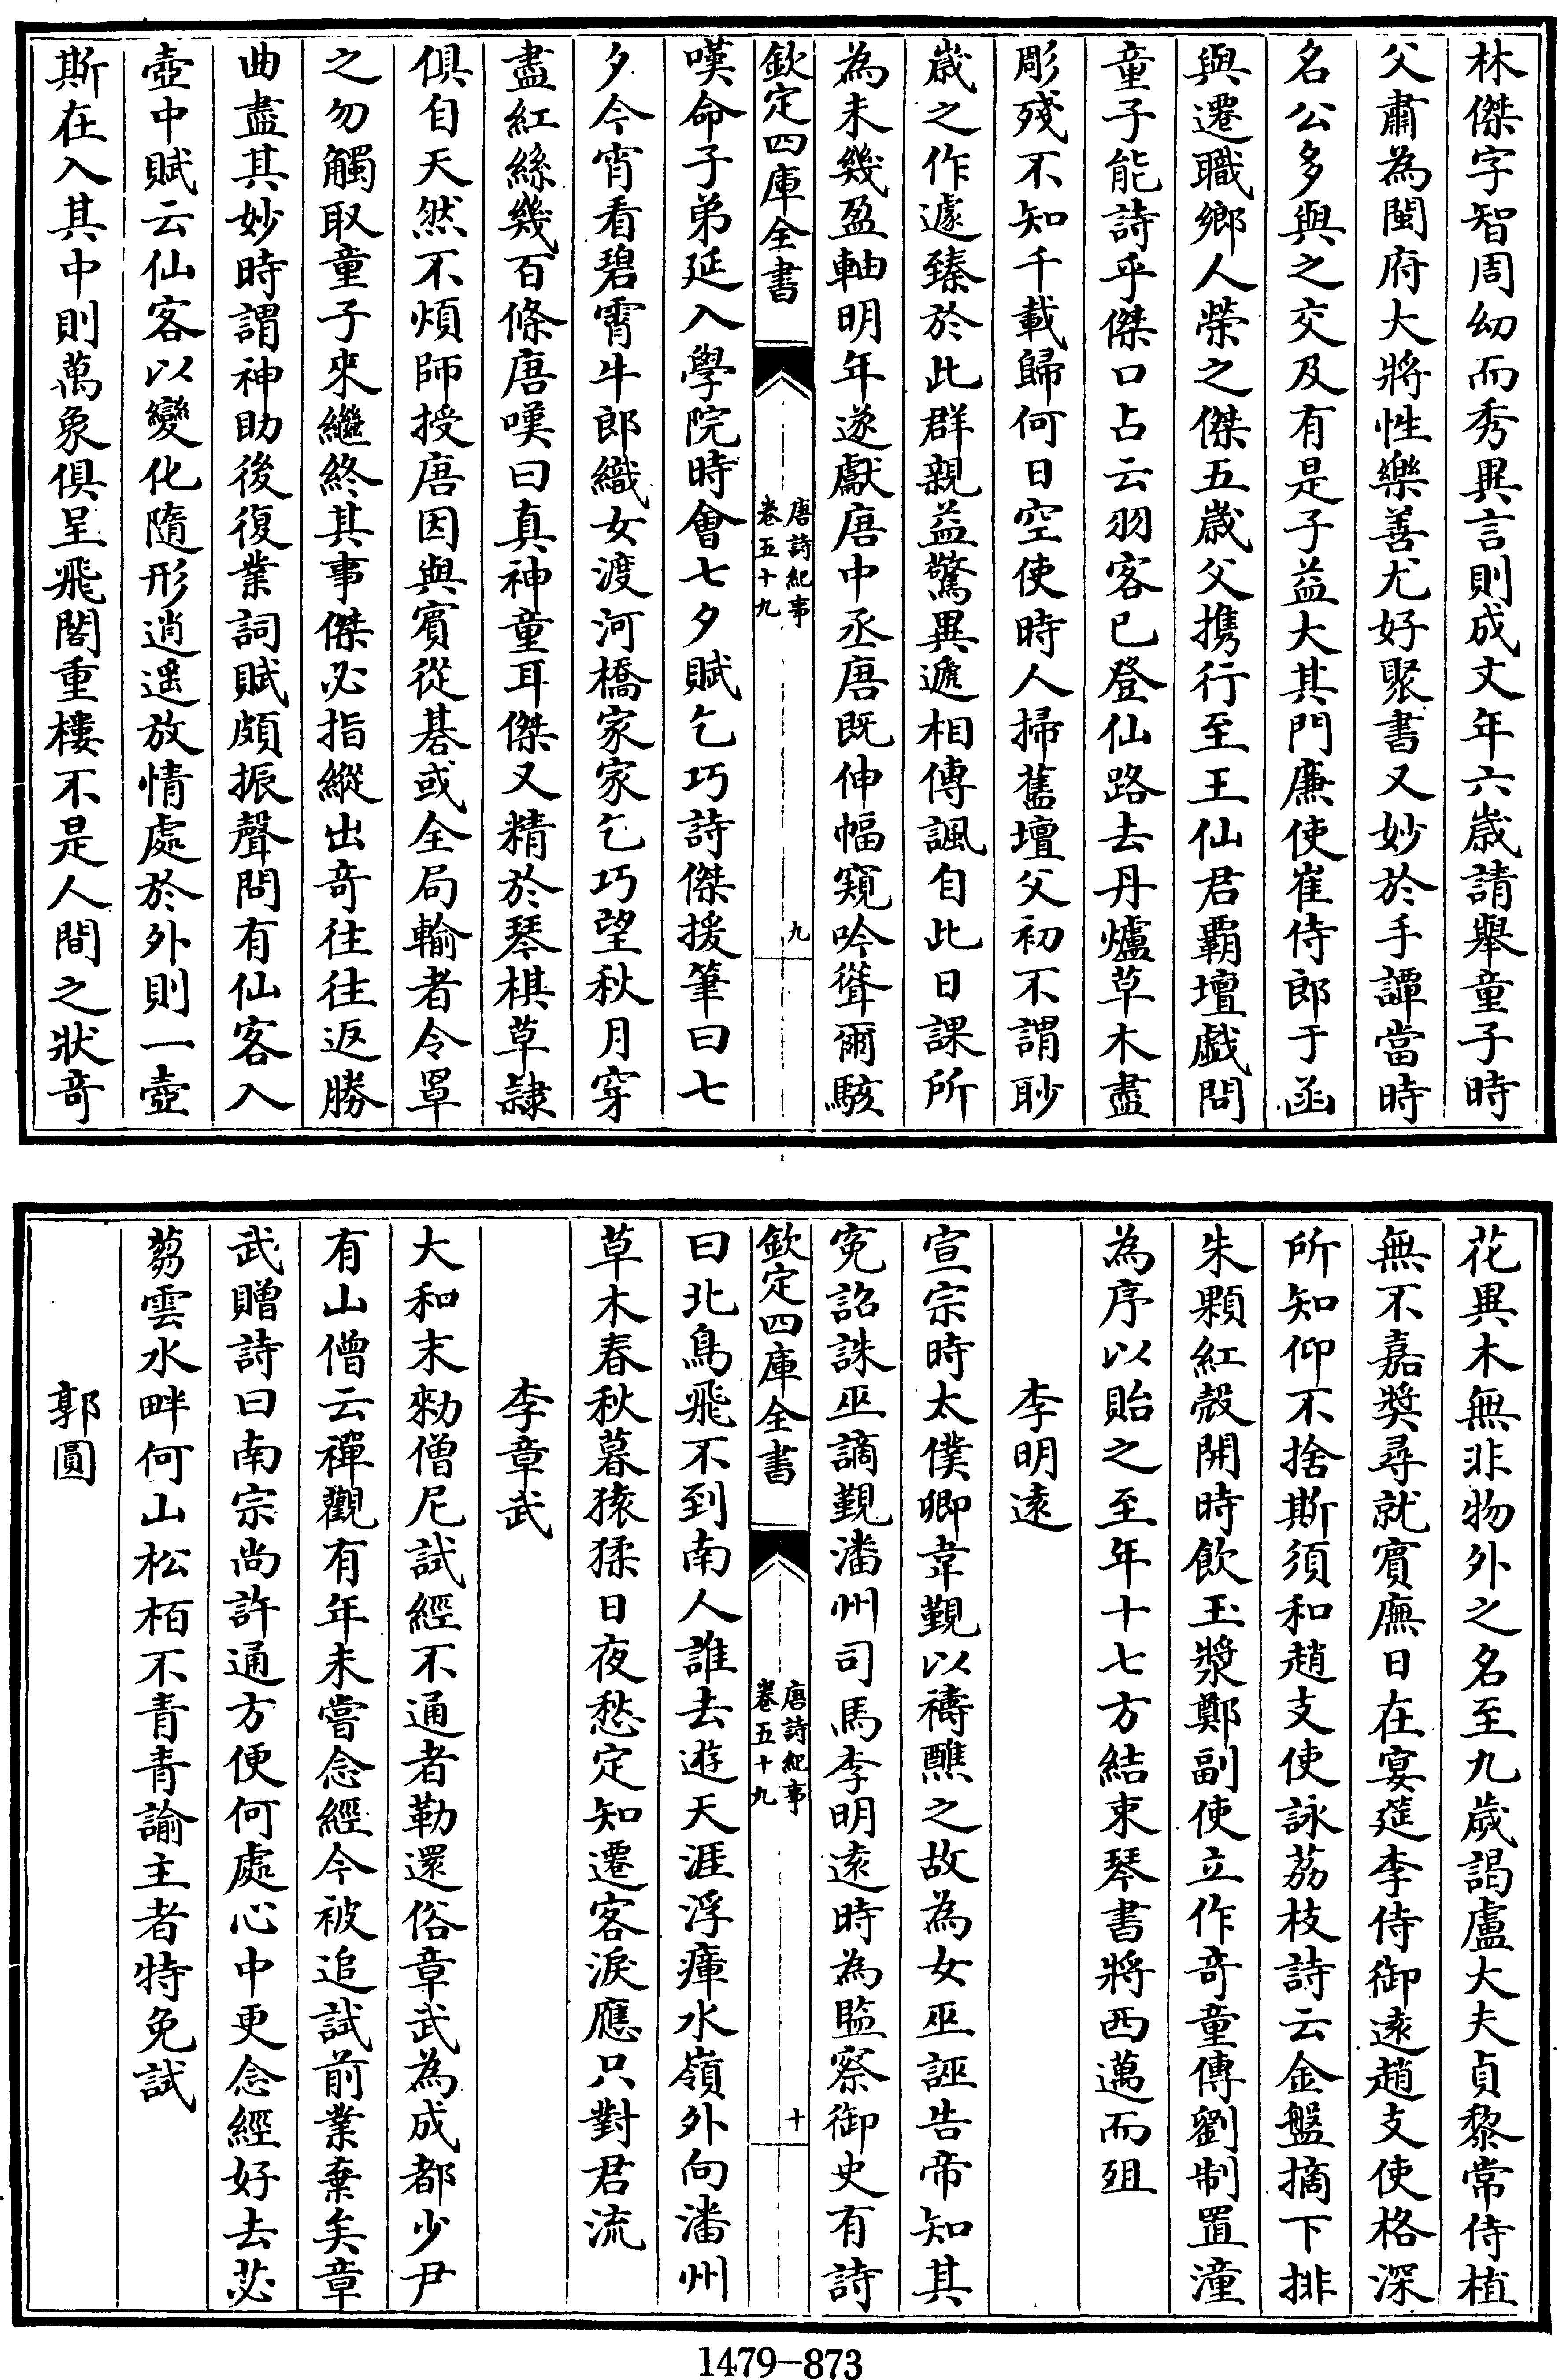 林傑字智周幼而秀異言則成文年六歲請舉童子時
父肅為閩府大將性樂善尤好聚書又妙於手譚當時
名公多與之交及有是子益大其門廉使崔侍郎于函
與遷職鄉人榮之傑五歲父携行至王仙君霸壇戯問
童子能詩乎傑口占云羽客已登仙路去丹爐草木盡
彫殘不知千載歸何日空使時人掃舊壇父初不謂眇
歲之作遽臻於此群親益驚異遞相傳諷自此日課所
為未幾盈軸明年遂獻唐中丞唐既伸幅窺吟聳爾駭
欽定四庫全書
唐詩紀事
卷五十九
九
嘆命子弟延入學院時會七夕賦乞巧詩傑援筆曰七
夕今宵看碧霄牛郎織女渡河橋家家乞巧望秋月穿
盡紅絲幾百條唐嘆曰真神童耳傑又精於琴棋草隸
俱自天然不煩師授唐因與賓從碁或全局輸者令罩
之勿觸取童子來繼終其事傑必指縱出竒往往返勝
曲盡其妙時謂神助後復業詞賦頗振聲問有仙客入
壺中賦云仙客以變化隨形逍遥放情處於外則一壺
斯在入其中則萬象俱呈飛閣重樓不是人間之狀竒
花異木無非物外之名至九歲謁盧大夫貞黎常侍植
無不嘉奬尋就賓廡日在宴筵李侍御逺趙支使格深
所知仰不捨斯須和趙支使詠荔枝詩云金盤摘下排
朱顆紅殼開時飲玉漿鄭副使立作竒童傳劉制置潼
為序以貽之至年十七方結束琴書將西邁而殂
李明逺
宣宗時太僕卿韋覲以禱醮之故為女巫誣告帝知其
寃詔誅巫謫覲潘州司馬李明逺時為監察御史有詩
欽定四庫全書
唐詩紀事
卷五十九
十
曰北鳥飛不到南人誰去遊天涯浮瘴水嶺外向潘州
草木春秋暮猿猱日夜愁定知遷客淚應只對君流
李章武
大和末勑僧尼試經不通者勒還俗章武為成都少尹
有山僧云禪觀有年未嘗念經今被追試前業棄矣章
武贈詩曰南宗尚許通方便何處心中更念經好去苾
蒭雲水畔何山松栢不青青諭主者特免試
郭圓
1479-873